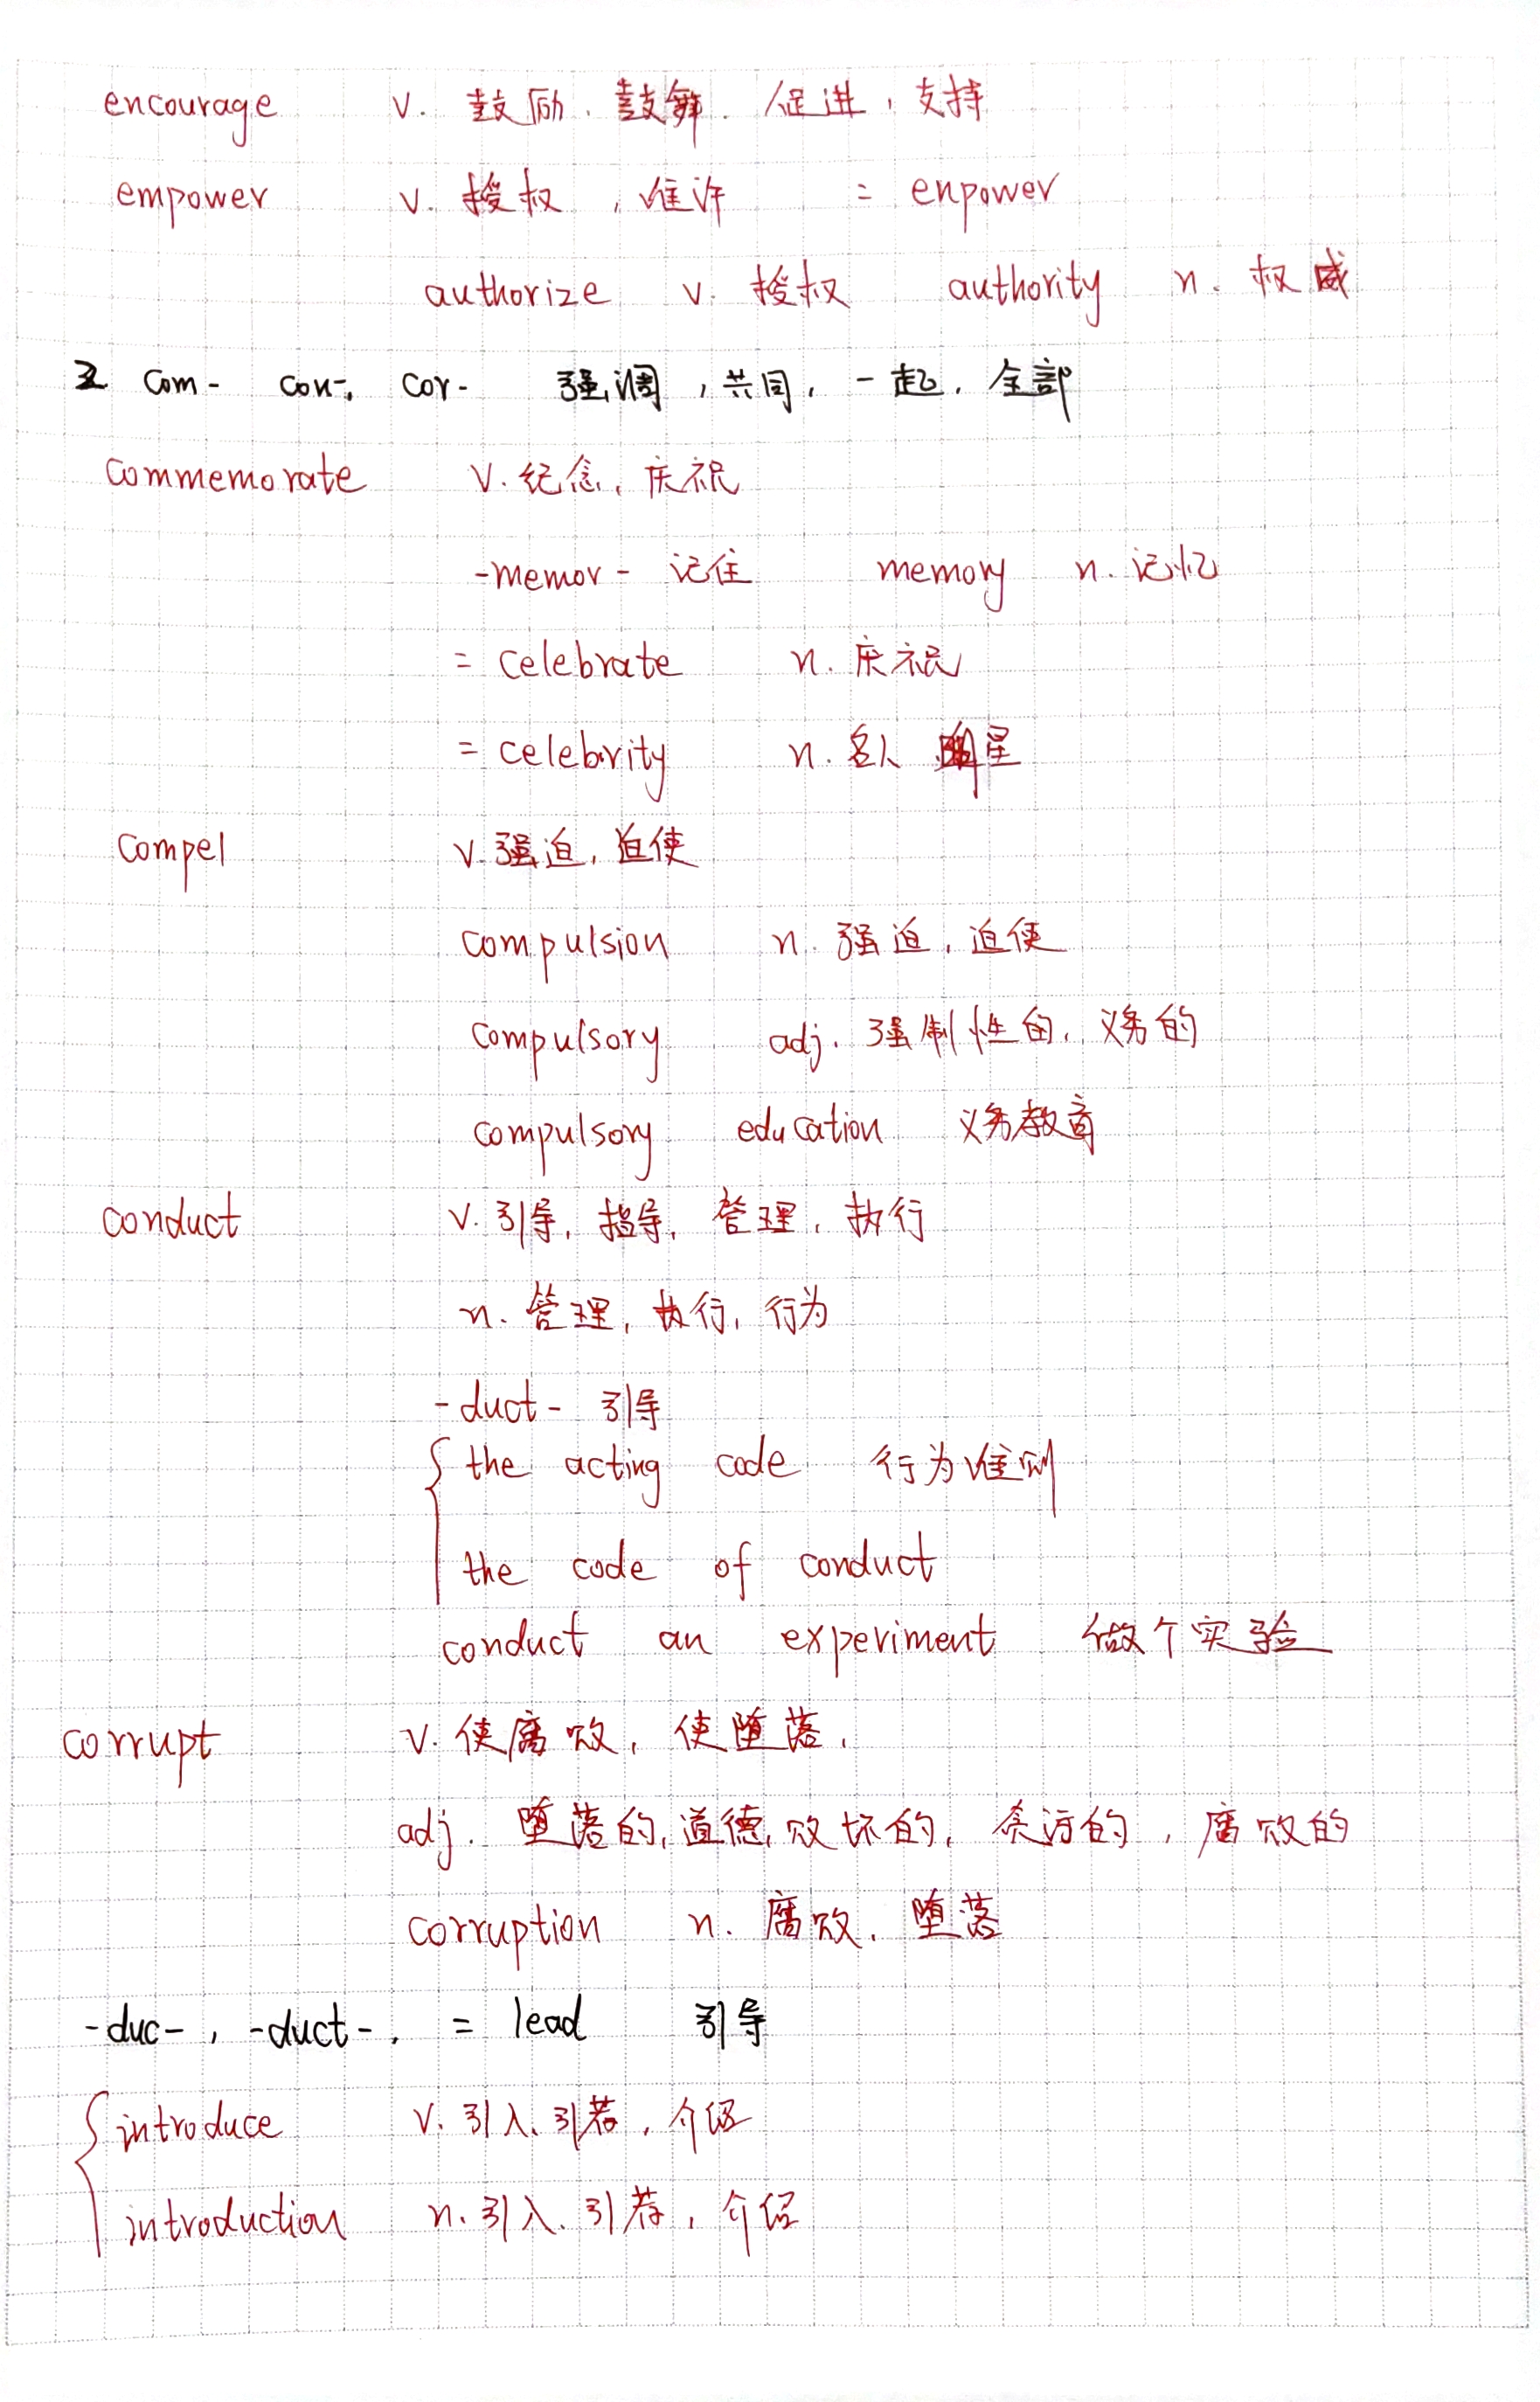 encourage v. 鼓励、鼓舞、促进，支持
empower v. 授权，准许 = enpower
authorize v. 授权 authority n. 权威
2 com- con-, cor- 强调，共同，一起，全部
commemorate v. 纪念，庆祝
-memor- 记住 memory n. 记忆
= celebrate n. 庆祝
= celebrity n. 名人 明星
compel v. 强迫，迫使
compulsion n. 强迫，迫使
compulsory adj. 强制性的，义务的
compulsory education 义务教育
conduct v. 引导，指导，管理，执行
n. 管理，执行，行为
-duct- 引导
the acting code 行为准则
the code of conduct
conduct an experiment 做个实验
corrupt v. 使腐败，使堕落，
adj. 堕落的，道德败坏的，贪污的，腐败的
corruption n. 腐败，堕落
-duc-, -duct-, = lead 引导
introduce v. 引入、引荐，介绍
introduction n. 引入、引荐，介绍